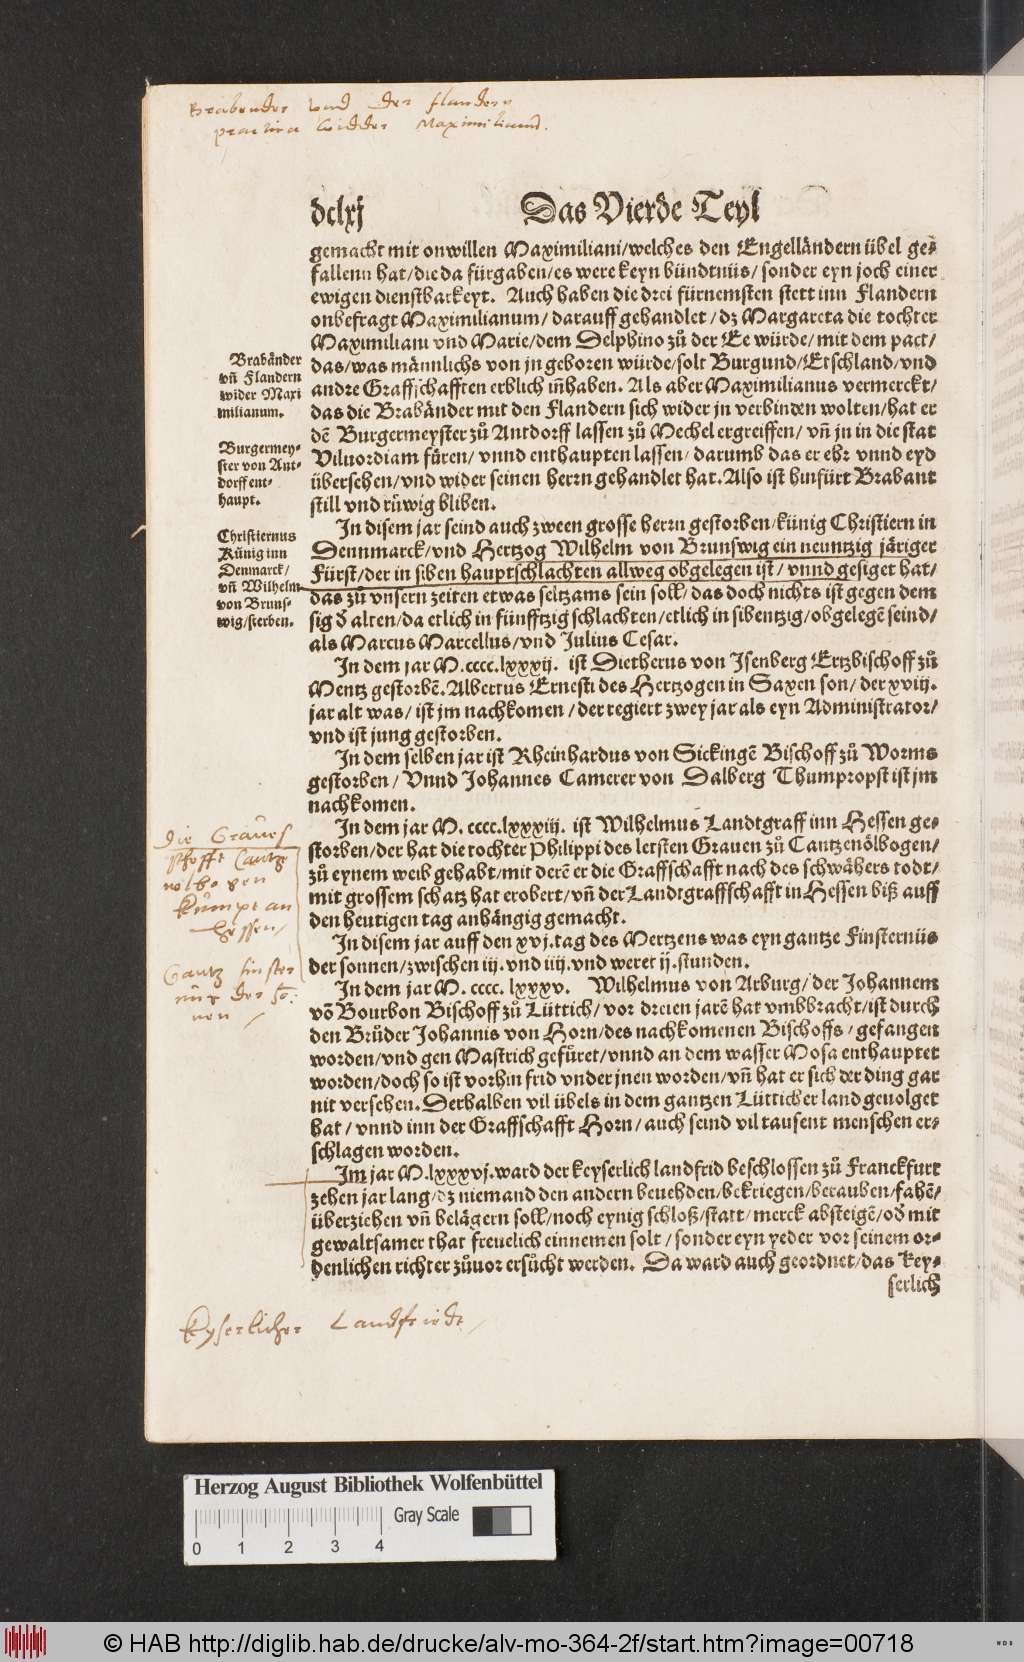 Brabender vnd der flandere
practica widder Maximilianum.
dclxj
Das Vierde Teyl
gemacht mit onwillen Maximiliani/welches den Engelländern übel ge⸗
fallenn hat/die da fürgaben/es were keyn bündtnüs/sonder eyn joch einer
ewigen dienstbarkeyt. Auch haben die drei fürnemsten stett inn Flandern
onbefragt Maximilianum/darauff gehandlet/dz Margareta die tochter
Maximiliani vnd Marie/dem Delphino zů der Ee würde/mit dem pact/
das/was männlichs von jn geboren würde/solt Burgund/Etschland/vnd
andre Graffschafften erblich iñhaben. Als aber Maximilianus vermerckt/
das die Brabänder mit den Flandern sich wider jn verbinden wolten/hat er
dẽ Burgermeyster zů Antdorff lassen zů Mechel ergreiffen/vñ jn in die stat
Viluordiam füren/vnnd enthaupten lassen/darumb das er ehr vnnd eyd
übersehen/vnd wider seinen herrn gehandlet hat. Also ist hinfürt Brabant
still vnd rüwig bliben.
Brabänder
vñ Flandern
wider Maxi
milianum.
Burgermey⸗
ster von Ant⸗
dorff ent⸗
haupt.
In disem jar seind auch zween grosse herrn gestorben/künig Christiern in
Dennmarck/vnd Hertzog Wilhelm von Brunswig ein neuntzig järiger
Fürst/der in siben hauptschlachten allweg obgelegen ist/vnnd gesiget hat/
das zů vnsern zeiten etwas seltzams sein soll/das doch nichts ist gegen dem
sig d̃ alten/da etlich in fünfftzig schlachten/etlich in sibentzig/obgelegẽ seind/
als Marcus Marcellus/vnd Julius Cesar.
Christiernus
Künig inn
Denmarck/
vñ Wilhelm
von Bruns⸗
wig/sterben.
In dem jar M.cccc.lxxxij. ist Dietherus von Isenberg Ertzbischoff zů
Mentz gestorbẽ. Albertus Ernesti des Hertzogen in Saxen son/der xviij.
jar alt was/ist jm nachkomen/der regiert zwey jar als eyn Administrator/
vnd ist jung gestorben.
In dem selben jar ist Rheinhardus von Sickingẽ Bischoff zů Worms
gestorben/Vnnd Johannes Camerer von Dalberg Thumpropst ist jm
nachkomen.
In dem jar M.cccc.lxxxiij. ist Wilhelmus Landtgraff inn Hessen ge⸗
storben/der hat die tochter Philippi des letsten Grauen zů Cantzenölbogen/
zů eynem weib gehabt/mit derẽ er die Graffschafft nach des schwähers todt/
mit grossem schatz hat erobert/vñ der Landtgraffschafft in Hessen biß auff
den heutigen tag anhängig gemacht.
Die Graues
schafft Cantze
nolbogen
kumpt an
hessen/
In disem jar auff den xvj.tag des Mertzens was eyn gantze Finsternüs
der sonnen/zwischen iij.vnd iiij.vnd weret ij.stunden.
Gantz finster
nür der So:
nen/
In dem jar M.cccc.lxxxv. Wilhelmus von Arburg/der Johannem
võ Bourbon Bischoff zů Lüttich/vor dreien jarẽ hat vmbbracht/ist durch
den Brüder Johannis von Horn/des nachkomenen Bischoffs/gefangen
worden/vnd gen Mastrich gefüret/vnnd an dem wasser Mosa enthauptet
worden/doch so ist vorhin frid vnder jnen worden/vñ hat er sich der ding gar
nit versehen. Derhalben vil übels in dem gantzen Lütticher land geuolget
hat/vnnd inn der Graffschafft Horn/auch seind vil tausent menschen er⸗
schlagen worden.
Im jar M.lxxxvj.ward der keyserlich landfrid beschlossen zů Franckfurt
zehen jar lang/dz niemand den andern beuehden/bekriegen/berauben/fahẽ/
überziehen vñ belägern soll/noch eynig schloß/statt/merck absteigẽ/od̃ mit
gewaltsamer that freuelich einnemen solt/sonder eyn yeder vor seinem or⸗
denlichen richter zůuor ersůcht werden. Da ward auch geordnet/das key⸗
serlich
Kyserlicher Landfriede/
Herzog August Bibliothek Wolfenbüttel
Gray Scale
0 1 2 3 4
© HAB http://diglib.hab.de/drucke/alv-mo-364-2f/start.htm?image=00718